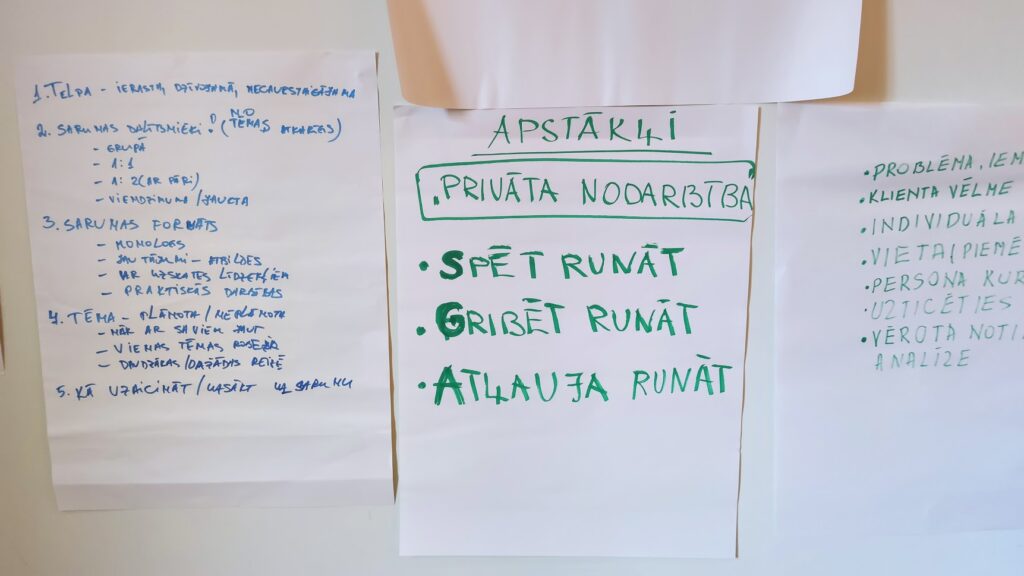 1. TELPA - IERASTA, DZĪVOJAMĀ, NECAURSTAIGĀJAMA
2. SARUNAS DALĪBNIEKI! (NO TĒMAS ATKARĪGS)
- GRUPĀ
- 1:1
- 1:2 (AR PĀRI)
- VIENDZIMUMA / JAUKTA
3. SARUNAS FORMĀTS
- MONOLOGS
- JAUTĀJUMI - ATBILDES
- AR UZSKATES LĪDZEKĻIEM
- PRAKTISKĀS DARBĪBAS
4. TĒMA - PLĀNOTA / NEPLĀNOTA
- NĀK AR SAVIEM JAUT
- VIENAS TĒMAS
- DAUDZĀKAS / DAŽĀDAS REIZĒ
5. KĀ UZAICINĀT / UZSĀKT UZ SARUNU
APSTĀKĻI
• PRIVĀTA NODARBĪBA
• SPĒT RUNĀT
• GRIBĒT RUNĀT
• ATĻAUJA RUNĀT
• PROBLĒMA, IEM
• KLIENTA VĒLME
• INDIVIDUĀLA
• VIETA, PIEMĒ
• PERSONA KUR
• UZTICĒTIES
• VĒROTA NOTI
ANALĪZE